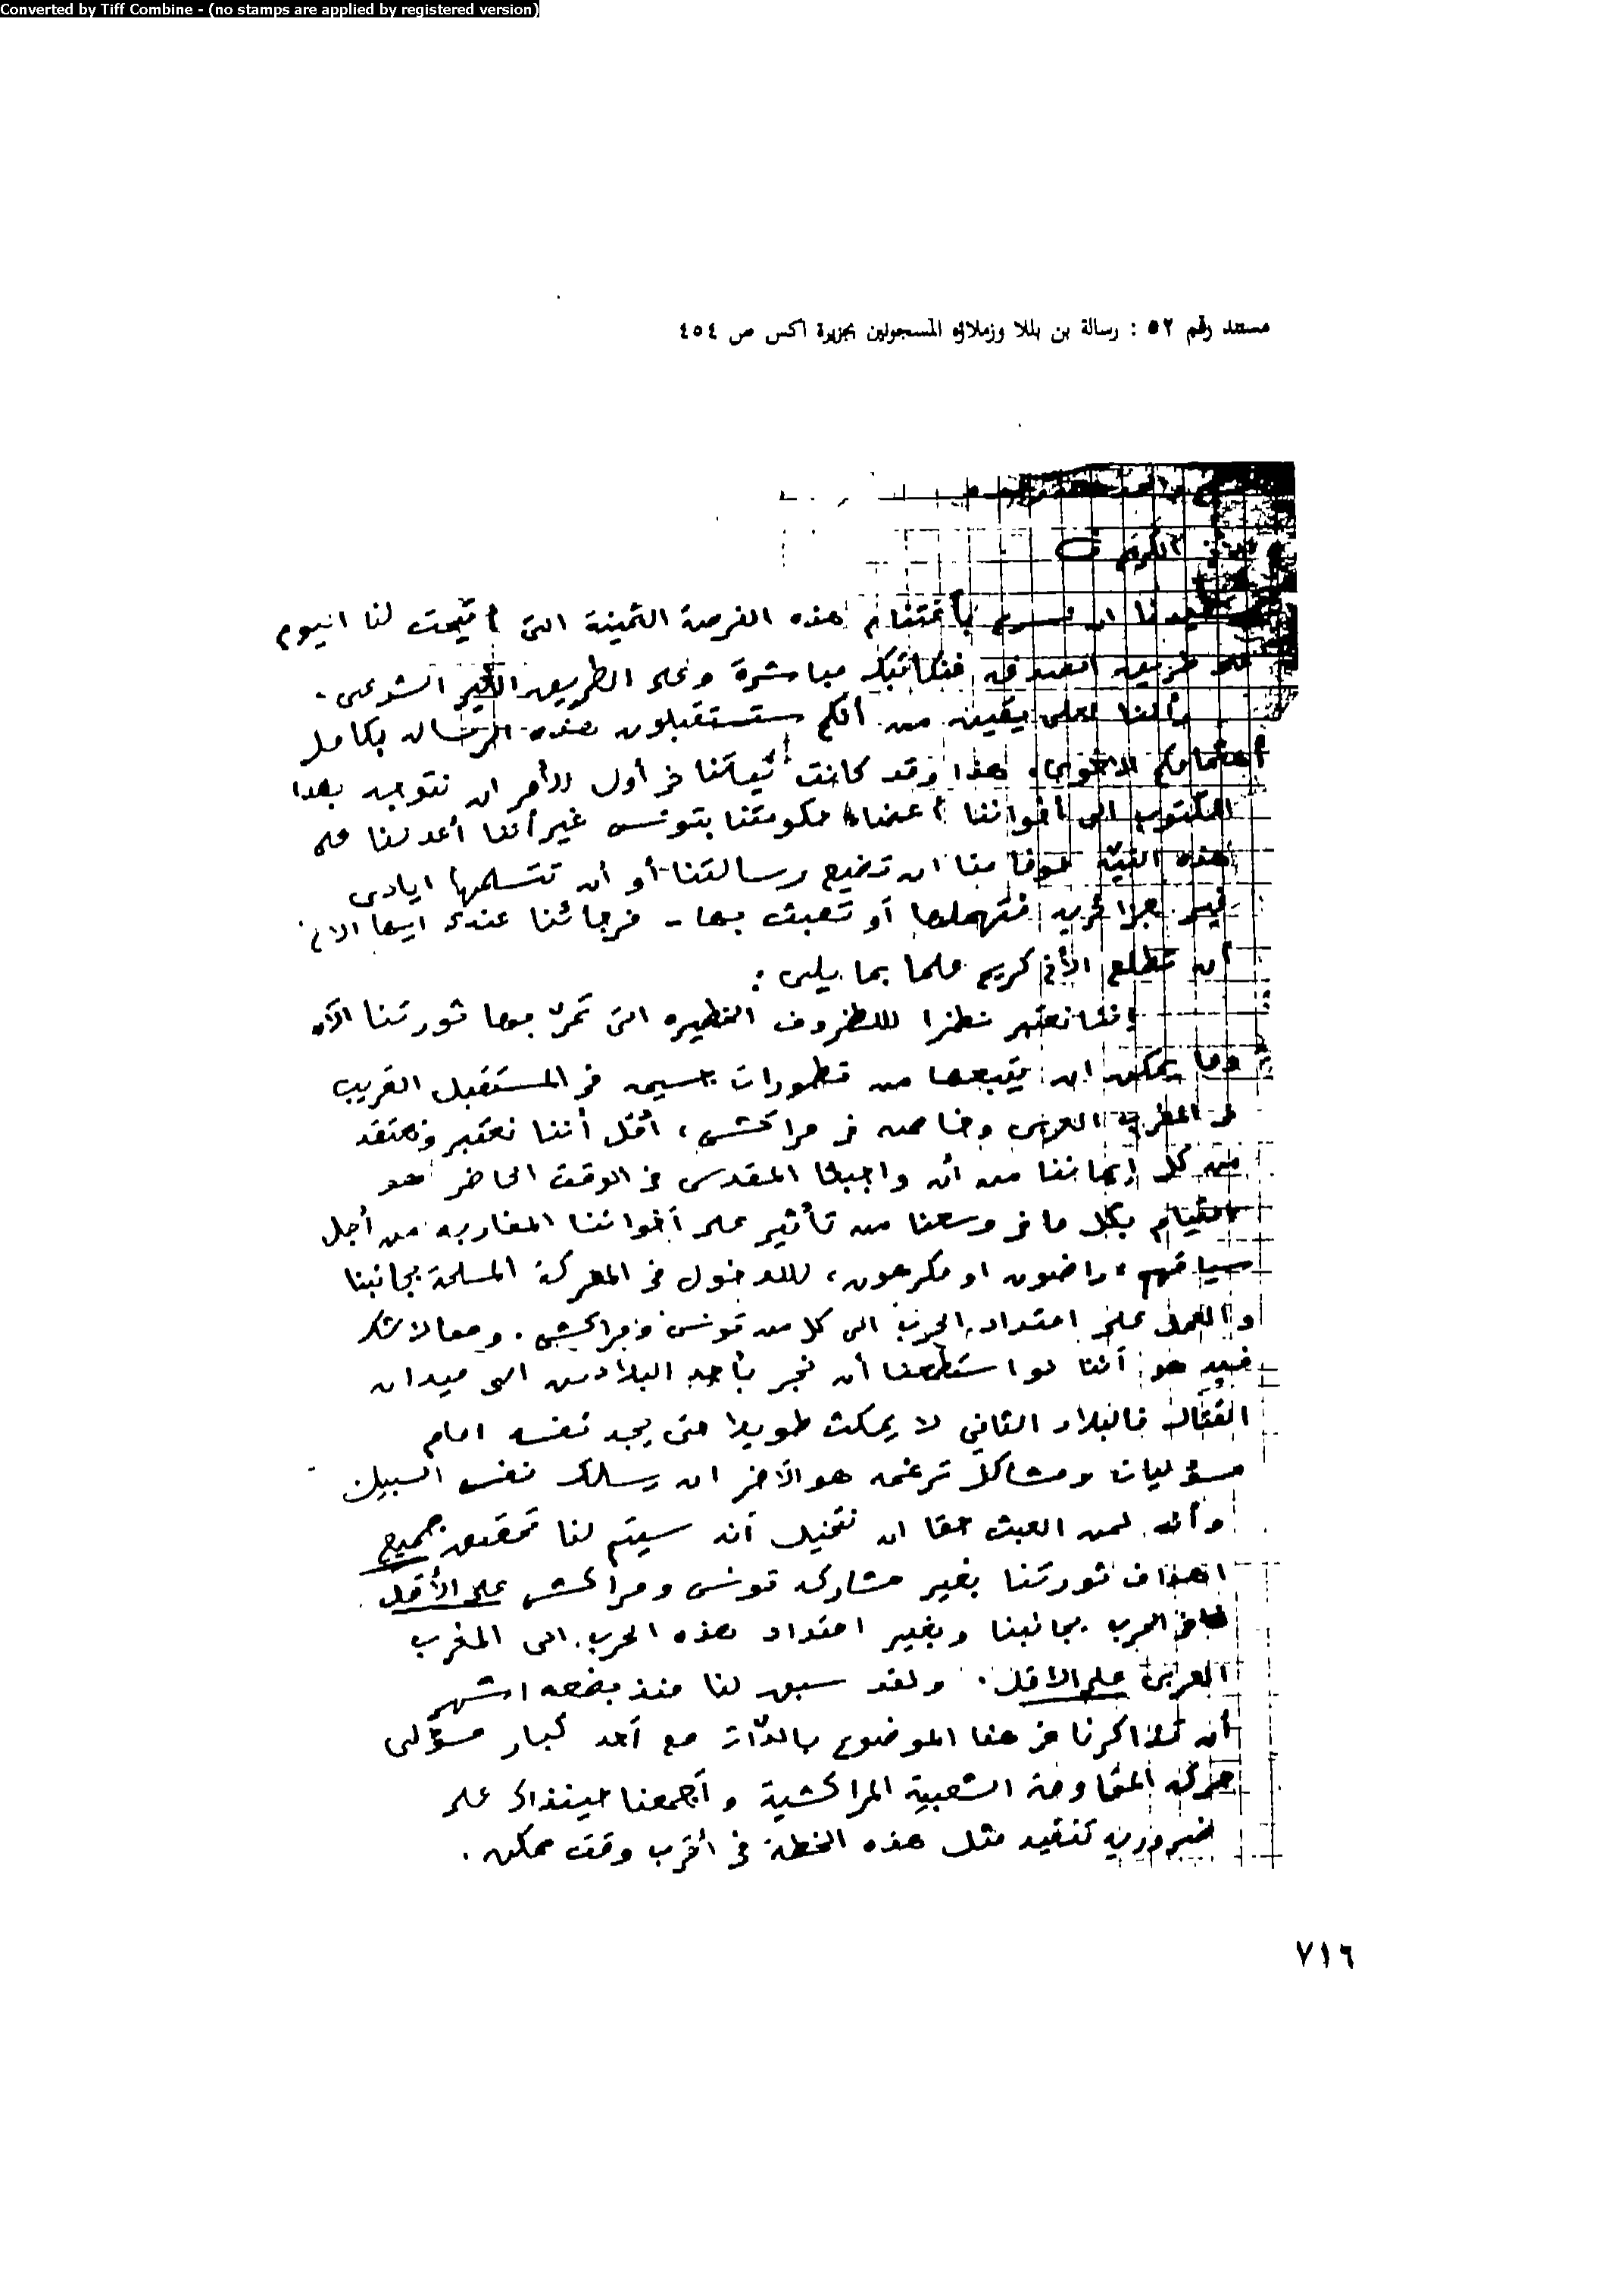 Converted by Tiff Combine - (no stamps are applied by registered version)
مستند رقم ٥٢ : رسالة بن بللا وزملائه المسجونين بجزيرة اكس ص ٤٥٤
الأخ الكريم ف
ان نسرع بأغتنام هذه الفرصة الثمينة التى أتيحت لنا اليوم
على طريق الصدف فنكاتبك مباشرة وعلى الطريق الغير الشرعى .
وأننا لعلى يقين من أنكم ستستقبلون هذه الرسالة بكامل
أهتمامكم الاخوى. هذا وقد كانت نيتنا فى أول الأمر ان نتوجه بهذا
المكتوب الى أخواننا أعضاء حكومتنا بتونس غير أننا أعدلنا على
هذه النيّة خوفا منا ان تضيع رسالتنا أو أن تتسلمها ايادى
غير جزائريه فتهملها أو تعبث بها - فرجائنا عندك ايها الاخ
أن تطلع الأخ كريم علما بما يلى :
إننا نعتبر نظرا للظروف الخطيره التى تمرّ بها ثورتنا الآن
وما يمكن ان يتبعها من تطورات جسيمه فى المستقبل القريب
فى المغرب العربى وخاصه فى مراكش ، أقل أننا نعتبر ونعتقد
من كل إيماننا من أن واجبنا المقدس فى الوقت الحاضر هو
القيام بكل ما فى وسعنا من تأثير على أخواننا المغاربه من أجل
سياقهم ، راضون او مكرهون ، للدخول فى المعركة المسلحة بجانبنا
والعمل على امتداد الحرب الى كل من تونس ومراكش . ومما لا شك
فيه هو أننا لو استطعنا أن نجر بأحد البلادين الى ميدان
القتال فالبلاد الثانى لا يمكث طويلا حتى يجد نفسه امام
مسؤليات ومشاكل ترغمه هو الآخر ان يسلك نفس السبيل
وأنه لمن العبث حقا ان نتخيل أنه سيتم لنا تحقيق جميع
اهداف ثورتنا بغير مشاركه تونس ومراكش على الأقل
فى الحرب بجانبنا وبغير امتداد هذه الحرب الى المغرب
العربى على الاقل . ولقد سبق لنا منذ بضعه اشهر
أن تذاكرنا فى هذا الموضوع بالذّات مع أحد كبار مسؤلى
حركة المقاومة الشعبية المراكشية وأجمعنا حينذاك على
ضروريه تنفيد مثل هذه الخطة فى أقرب وقت ممكن .
٧١٦